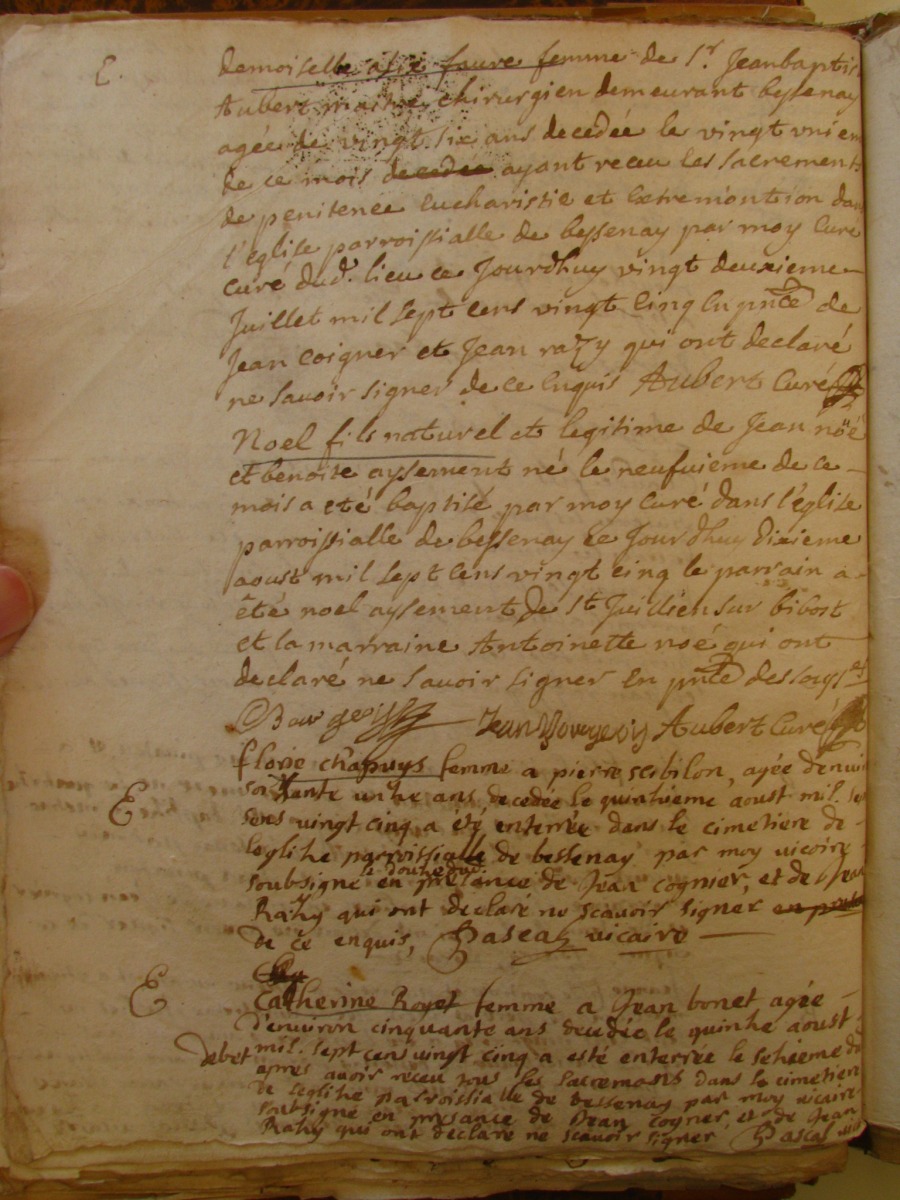 E.
demoiselle faure femme de Sr. Jeanbaptis
Aubert maitre chirurgien demeurant bessenay
agée de vingt six ans decedée le vingt uniem
de ce mois decedée ayant receu les sacrements
de penitence Eucharistie et Extremontion dans
l'église parroissialle de bessenay par moy Curé
curé dud. lieu ce Jourdhuy vingt deuxieme
Juillet mil sept cens vingt Cinq En pnce de
Jean Coigner et Jean razy qui ont declaré
ne savoir signer de ce Enquis Aubert Curé
Noel fils naturel et legitime de Jean noé
et benoite aysement né le neufuieme de ce
mois a eté baptisé par moy Curé dans l'église
parroissialle de bessenay ce Jourdhuy dixieme
aoust mil sept cens vingt cinq le parrain a
été noel aysement de St Juillien sur bibost
et la marraine Antoinette noé qui ont
declaré ne savoir signer En pnce des sousnes
Bourgeois Jean Bourgeois Aubert Curé
florie chapuys femme a pierre scibilon, agée d'envi
E soixante unhe ans decedée le quinhieme aoust mil. se
sens vingt cinq a été enterrée dans le cimetiere de
leglihe parroissialle de bessenay par moy vicaire
soubsigné en présance de Jean cognier, et de Jean
Rahy qui ont declaré ne scavoir signer
de ce enquis, Pascal vicaire
E Catherine Royet femme a Jean bonet agée
d'environ cinquante ans decedée le quinhe aoust
debet mil. sept cens vingt cinq a esté enterrée le sehieme du
apres avoir receu tous les sacremans dans le cimetiere
de leglihe parroissialle de bessenay par moy vicaire
soubsigné en présance de Jean cogner, et de Jean
Rahy qui ont declaré ne scavoir signer Pascal vicai